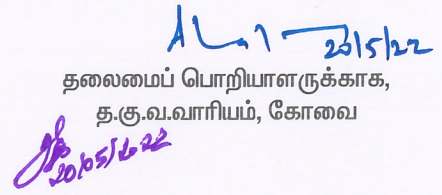 20/5/22
தலைமைப் பொறியாளருக்காக,
த.கு.வ.வாரியம், கோவை
20/05/2022